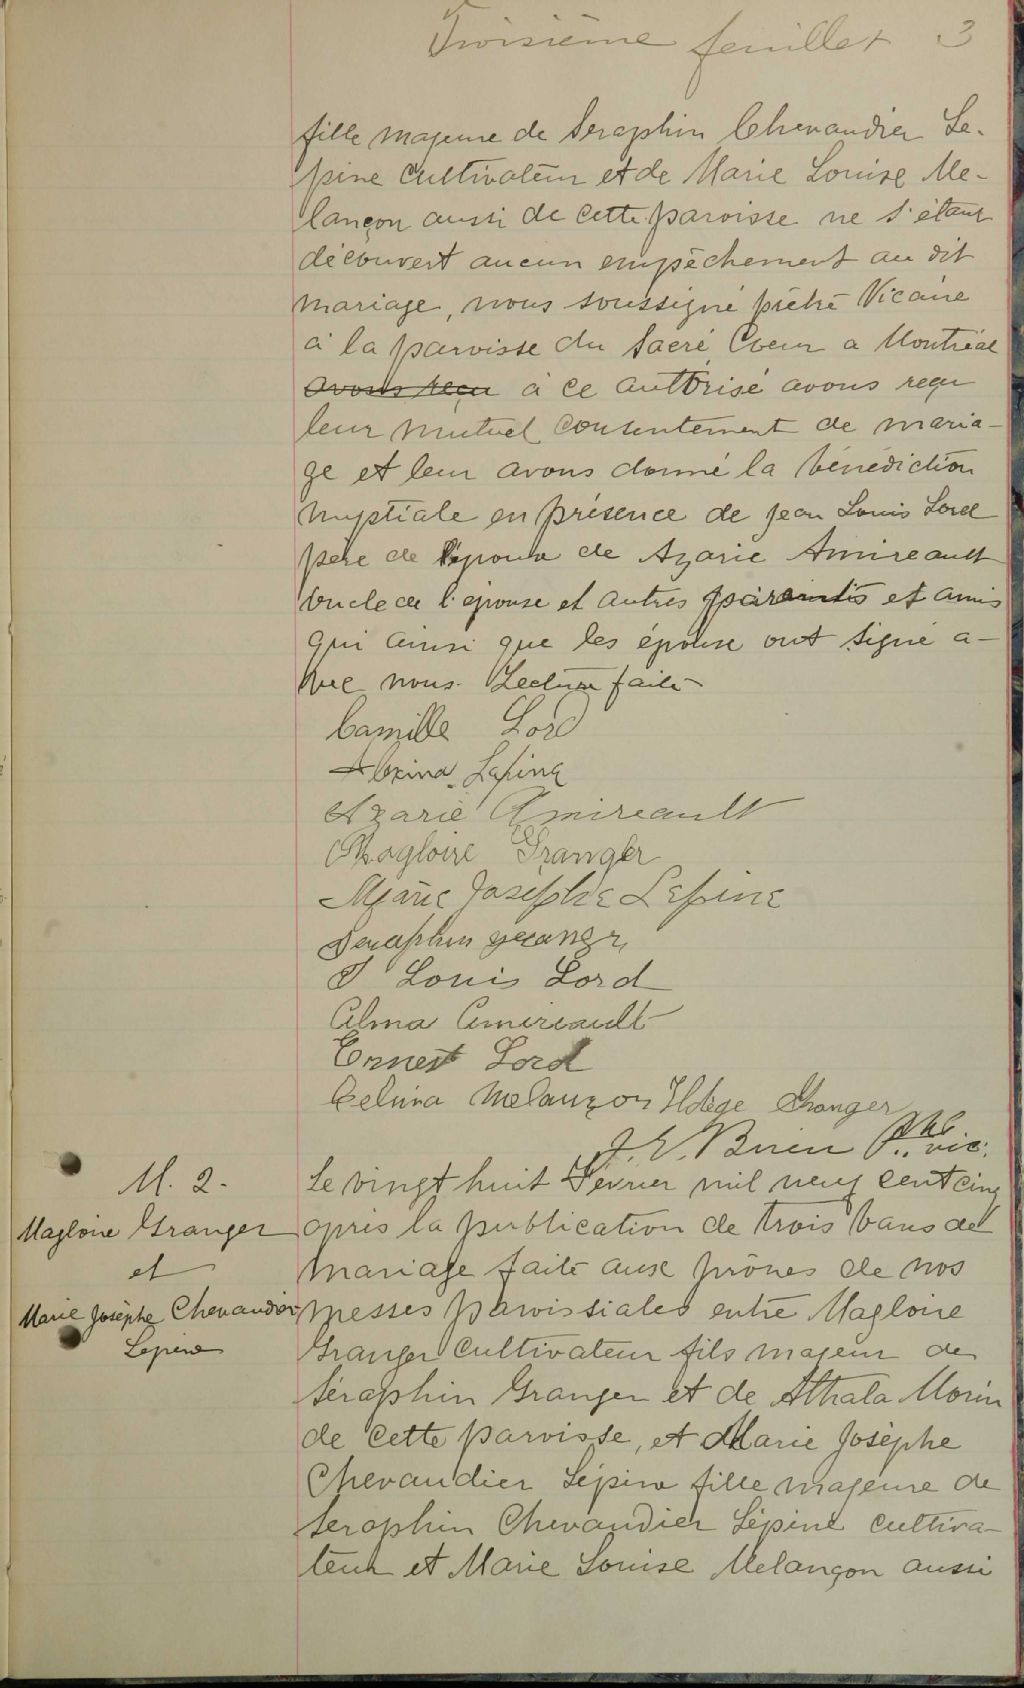 Troisième feuillet 3
fille majeure de Seraphin Chevaudier Le-
pine cultivateur et de Marie Louise Me-
lançon aussi de cette paroisse ne s'étant
découvert aucun empêchement au dit
mariage, nous soussigné prêtre Vicaire
à la paroisse du Sacré Coeur a Montréal
avons reçu à ce autorisé avons reçu
leur mutuel consentement de maria-
ge et leur avons donné la bénédiction
nuptiale en présence de Jean Louis Lord
père de l'époux de Azarie Amireault
oncle de l'épouse et autres parents et amis
qui ainsi que les époux ont signé a-
vec nous. Lecture faite
Camille Lord
Alexina Lepine
Azarie Amireault
Magloire Granger
Marie Josephe Lepine
Seraphin granger
J Louis Lord
Alma Amireault
Ernest Lord
Celina Melançon Granger
J. E. Brien Ptre vic.
M. 2.
Magloire Granger
et
Marie Josèphe Chevaudier
Lepine
Le vingt huit Fevrier mil neuf cent cinq
après la publication de trois bans de
mariage faite aux prônes de nos
messes paroissiales entre Magloire
Granger cultivateur fils majeur de
Séraphin Granger et de Athala Morin
de cette paroisse, et Marie Josèphe
Chevaudier Lépine fille majeure de
Seraphin Chevaudier Lépine cultiva-
teur et Marie Louise Melançon aussi